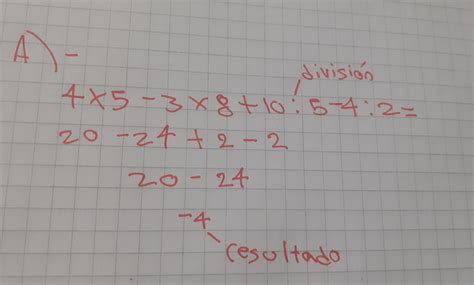 A) -
división
4x5-3x8+10:5-4:2=
20-24+2-2
20-24
-4
resultado